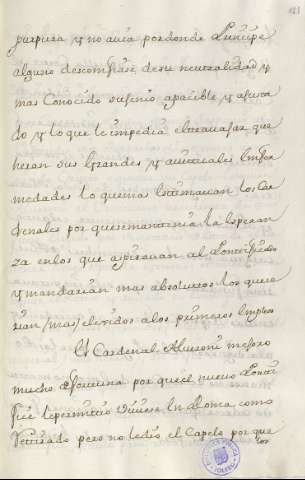 121
purpura y no auia por donde Principe
alguno desconfiase de su neutralidad y
mas Conocido su genio apacible y ajusta
do y lo que le impedia el trauajar que
heran sus grandes y auituales Enfer
medades lo que mas Estimauan los Car
denales por que se mantenia la Esperan
za en los que aspirauan al Pontificado
y mandarian mas absolutos los que se
rian (mas) elexidos a los primeros Empleos
El Cardenal Alueroni mejoro
mucho de fortuna por que el nuevo Ponti
fice le permitio Viuiese En Roma como
Retirado pero no le dio el Capelo por que
los
BIBLIOTECA
TOLEDO